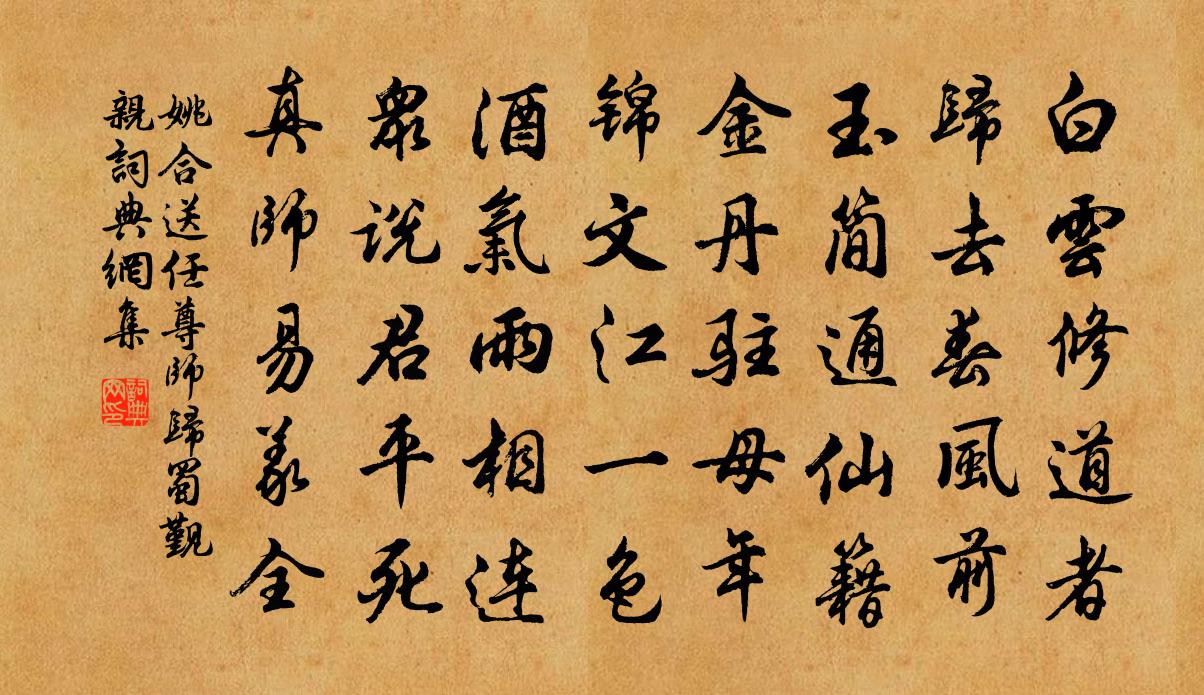 白雲修道者
歸去春風前
玉簡通仙籍
金丹駐母年
锦文江一色
酒氣雨相連
眾説君平死
真師易義全
姚合送任尊師歸蜀觐
親詞典網集
詞典
网印